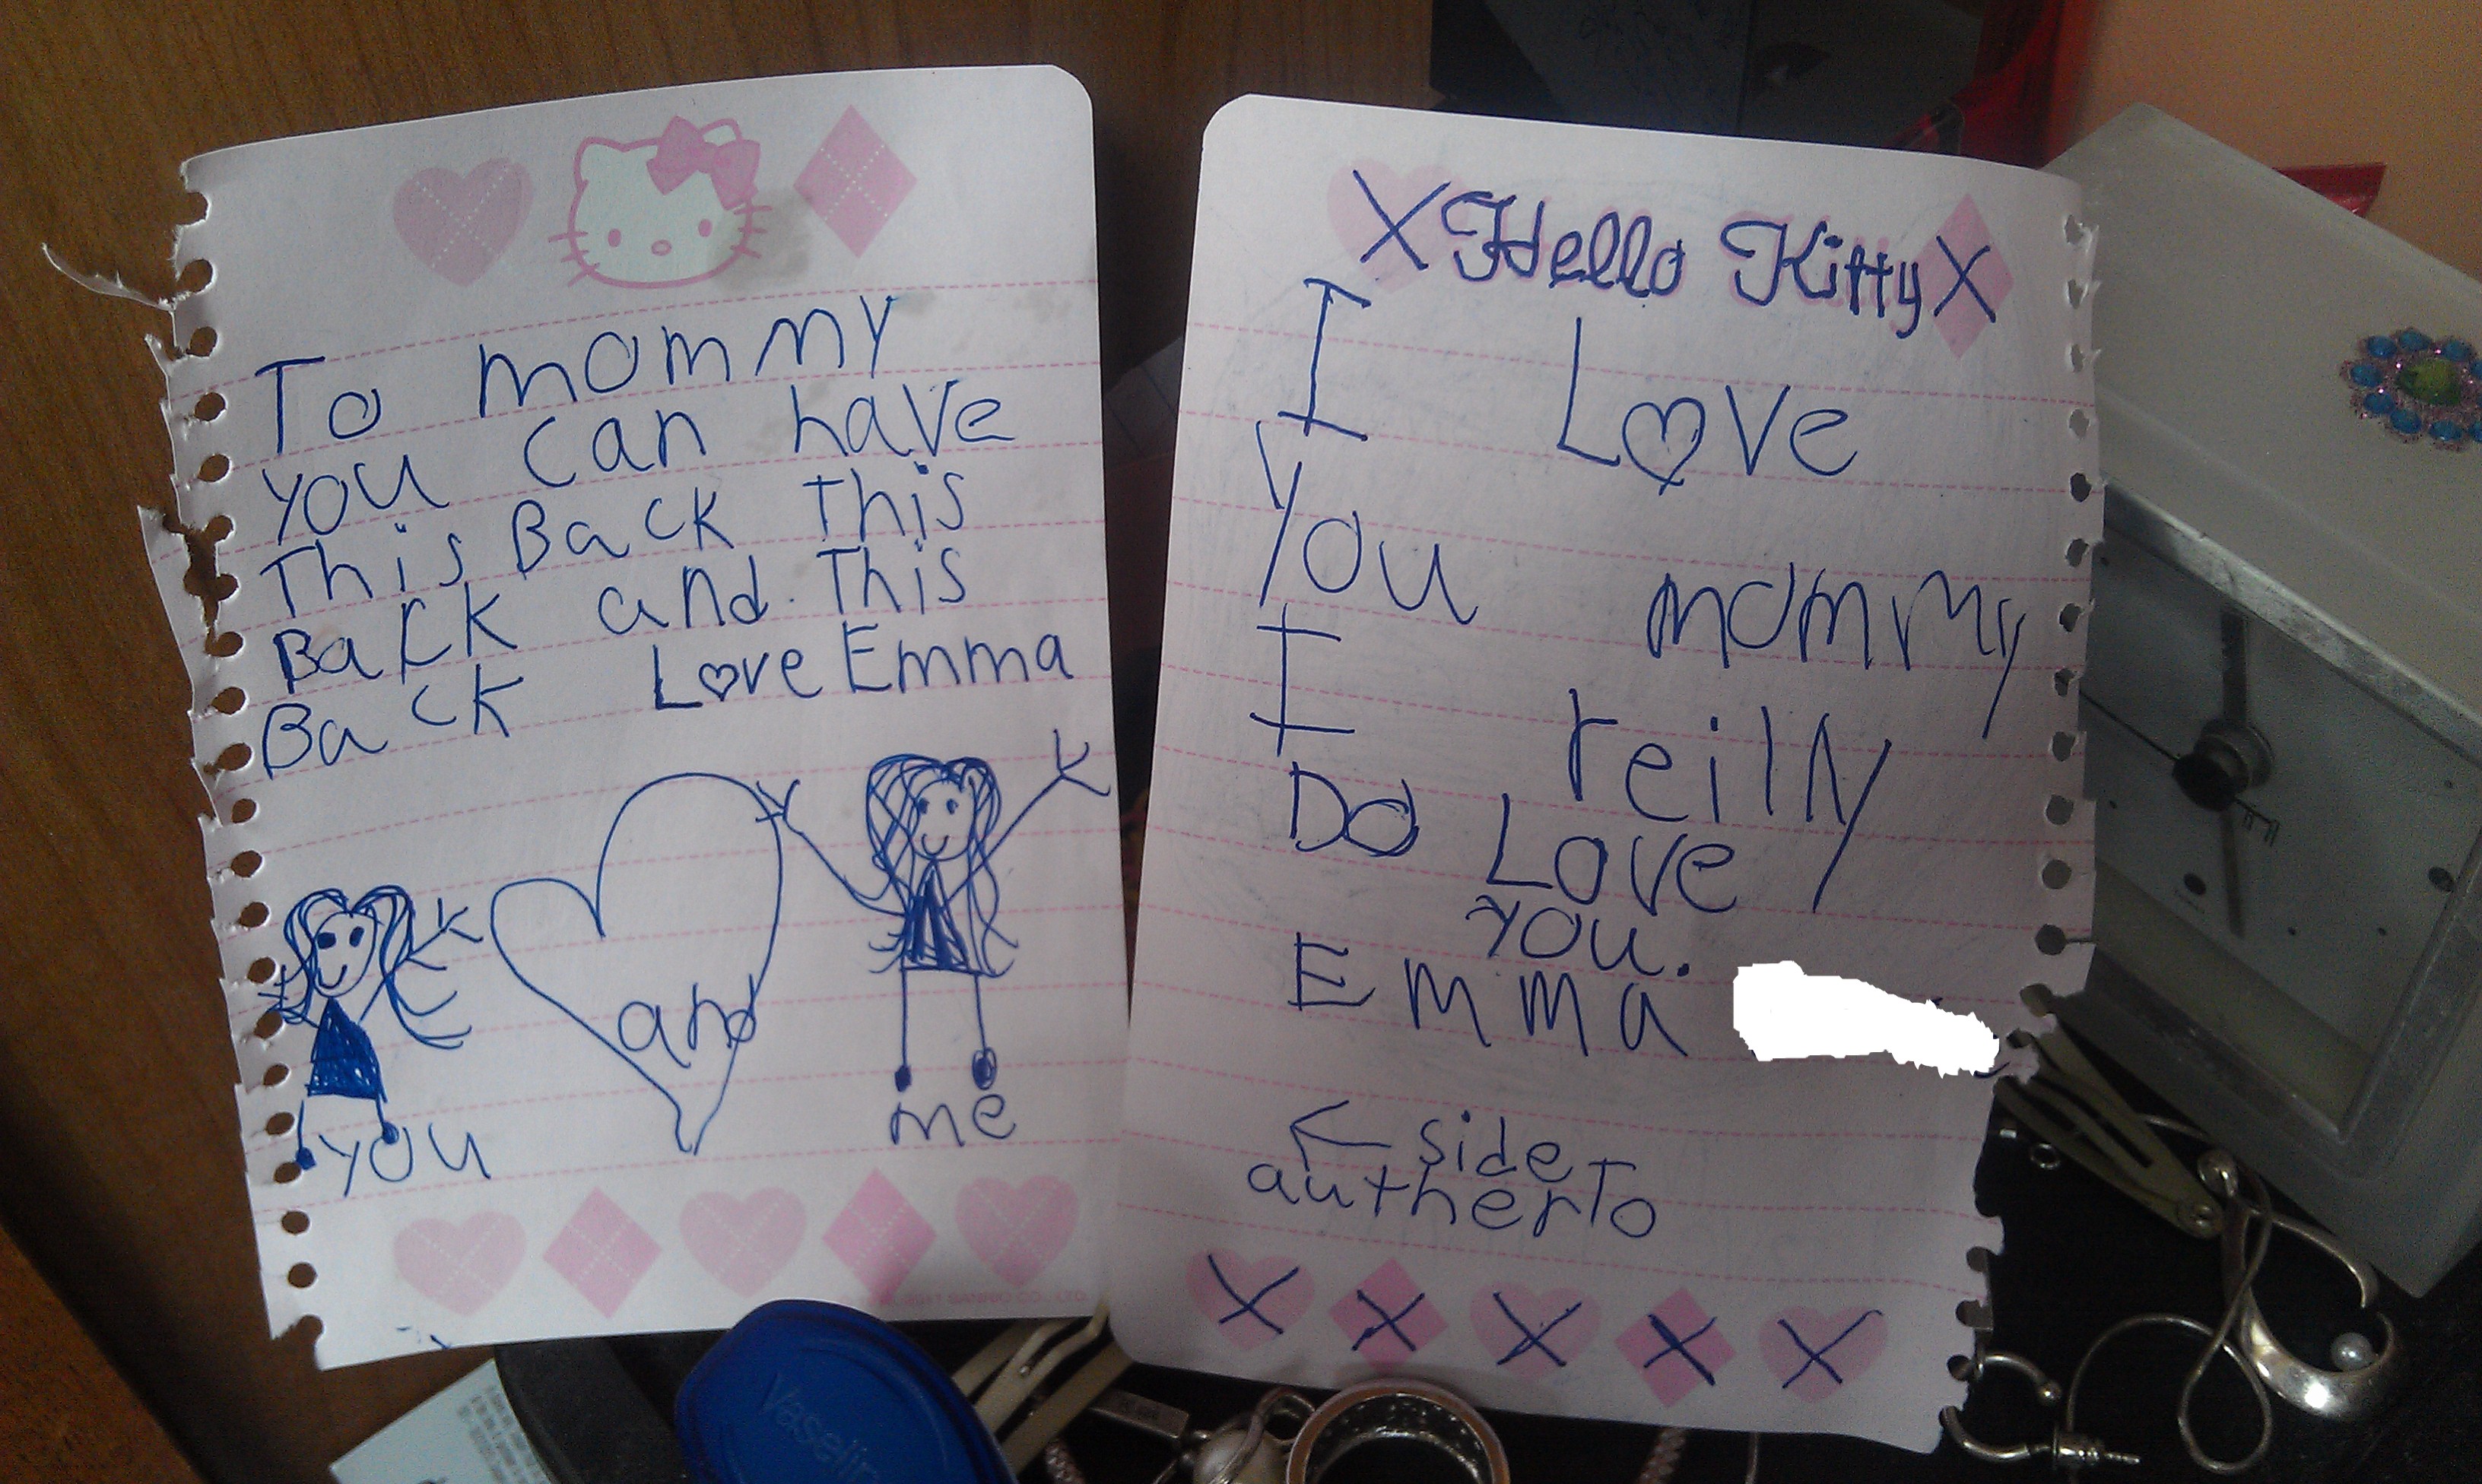 To mommy
you can have
This Back This
Back and This
Back Love Emma
and
you
me
X Hello Kitty X
I Love
you mommy
I reilly
Do Love
you.
Emma
← side
autherTo
X X X X X
Vaseline